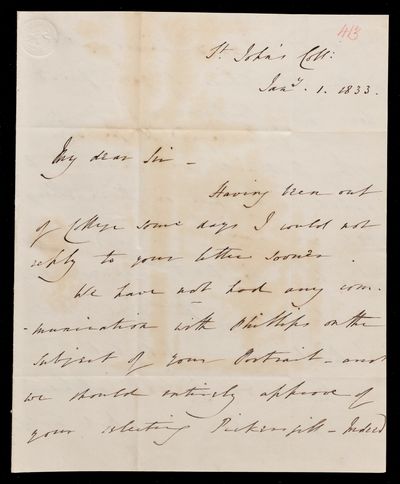 413
St. John's Coll:
Jany. 1. 1833.
My dear Sir -
Having been out
of College some days I could not
reply to your letter sooner.
We have not had any com-
-munication with Phillips on the
subject of your Portrait - and
we should entirely approve of
your selecting Pickersgill - Indeed